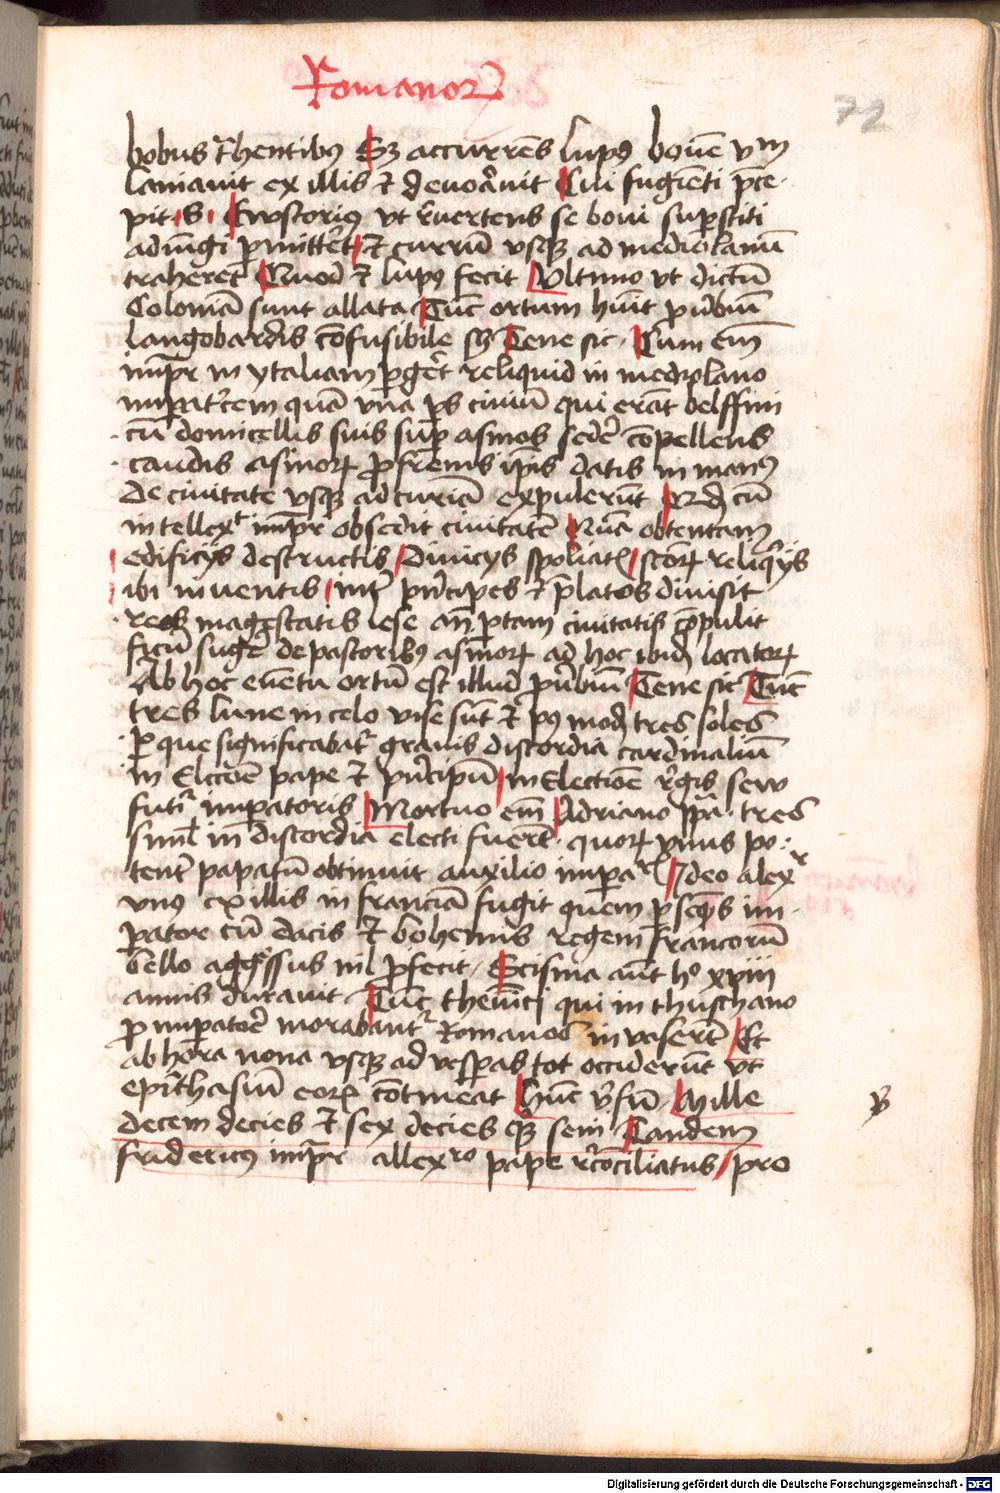 Romanor
72
bobus trahentibus Sz accurrens lupus bouem vnum
laniauit ex illis et deuorauit Cui fugienti prece-
pit s Ewstorius vt reuertens se boui superstiti
adiungi permitteret et currum vsque ad mediolanum
traheret Quod et lupus fecit Vltimo vt dictum
Coloniam sunt allata Tunc ortum huit prouerbium
langobardis confusibile sz Tene sic Cum enim
imperator in ytaliam pergeret reliquid in mediolano
imperatricem quam vna pars ciuium qui erant delffini
cum domicellis suis super asinos sedere compellens
caudis asinorum pro frenis ipsis datis in manus
de ciuitate vsque ad curiam expulerunt Quod cum
intellexit imperator obsedit ciuitatem Quam obtentam
edificijs destructis Diuicijs spoliatis sanctorum reliquijs
ibi inuentis inter principes et prelatos diuisit
reos magestatis lese ante portam ciuitatis compulit
ficum sugere de pastoribus asinorum ad hoc ibidem locatorum
Ab hoc euentu ortum est illud prouerbium Tene sic Tunc
tres lune in celo vise sunt et post modum tres soles
per que significabatur grauis discordia cardinalium
in Eleccione pape et principum in Electione regis sew
futuri imperatoris Mortuo enim Adriano papa tres
simul in discordia electi fuerunt quorum vnus po-
tenter papatum obtinuit auxilio imperatoris Ideo alexander
vnus ex illis in franciam fugit quem persequens im-
perator cum dacis et bohemis regem francorum
bello aggressus nil perfecit Scisma autem hoc xviii
annis durauit Tunc theutunici qui in thuschano
pro imperatore morabantur Romanos inuaserunt Et
ab hora nona vsque ad vesperas tot occiderunt vt
epithasium eorum contineat Hunc versum Mille
decem decies et sex decies quoque sem Tandem
fridericus imperator allexandro pape reconciliatus pro